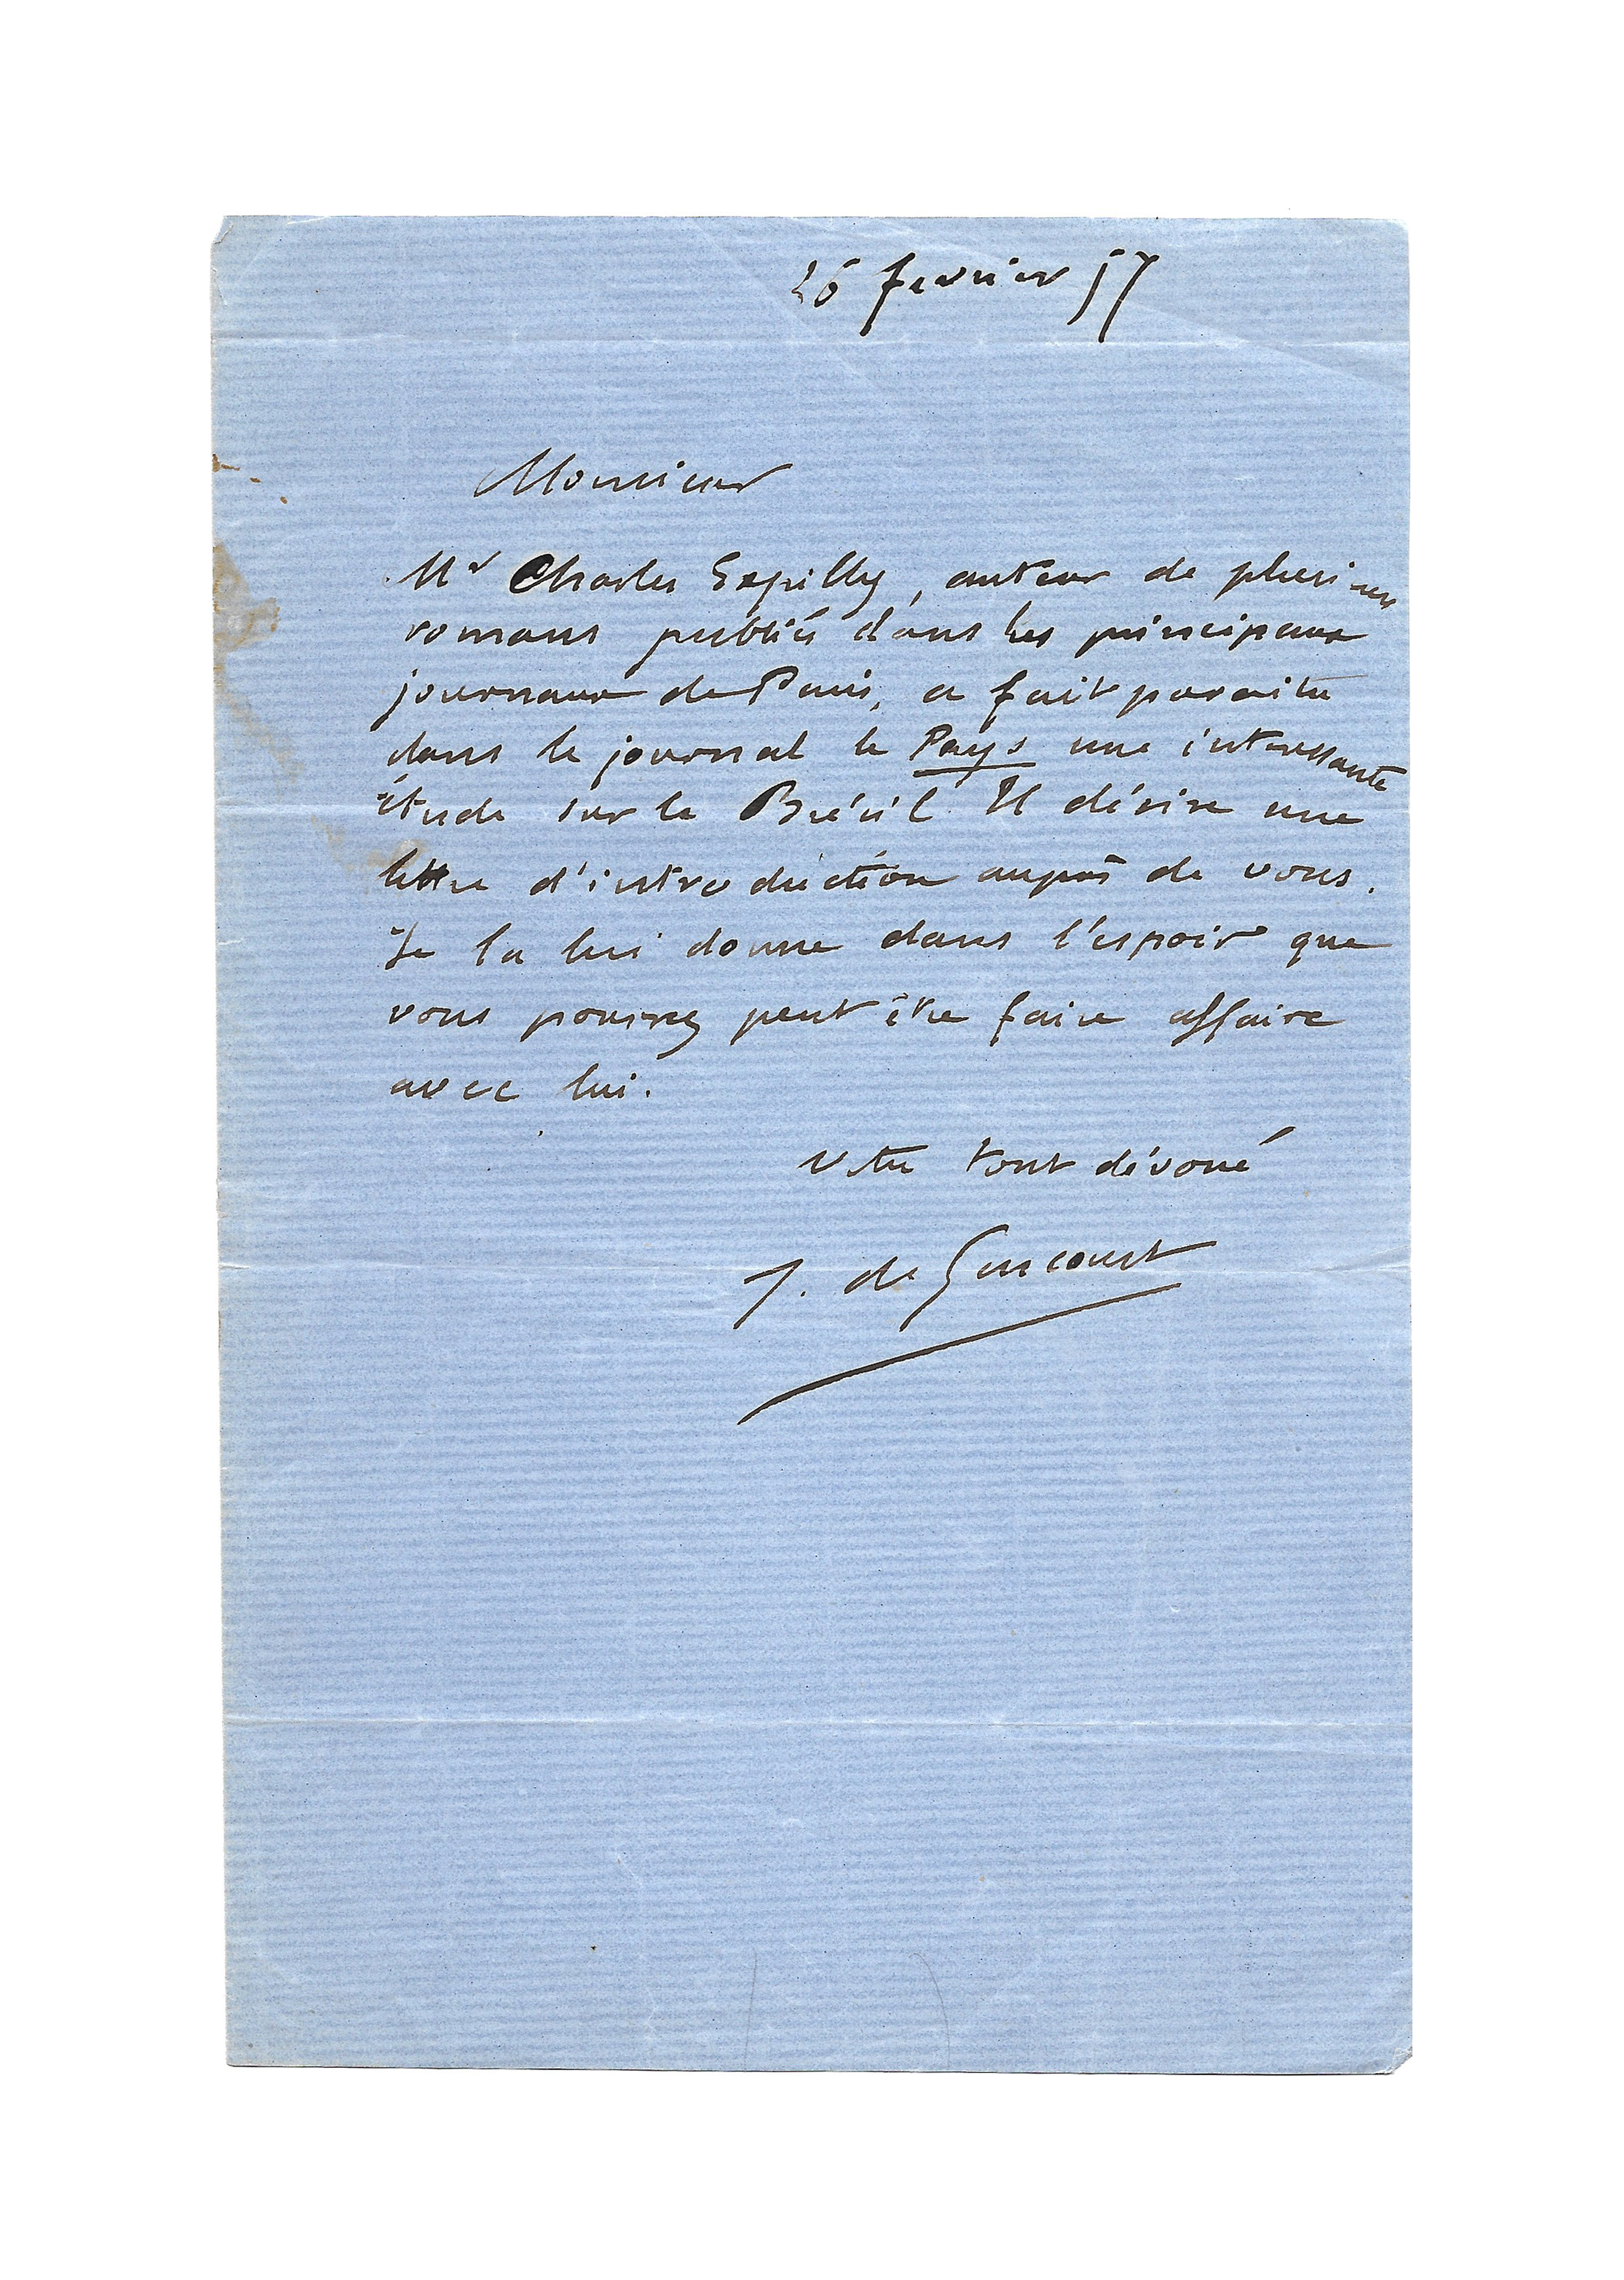 26 fevrier 57
Monsieur
Mr Charles Expilly, auteur de plusieurs
romans publiés dans les principaux
journaux de Paris, a fait paraitre
dans le journal le Pays une interessante
étude sur le Brésil. Il désire une
lettre d'introduction auprès de vous.
Je la lui donne dans l'espoir que
vous pourrez peut être faire affaire
avec lui.
Votre tout dévoué
J. de Goncourt